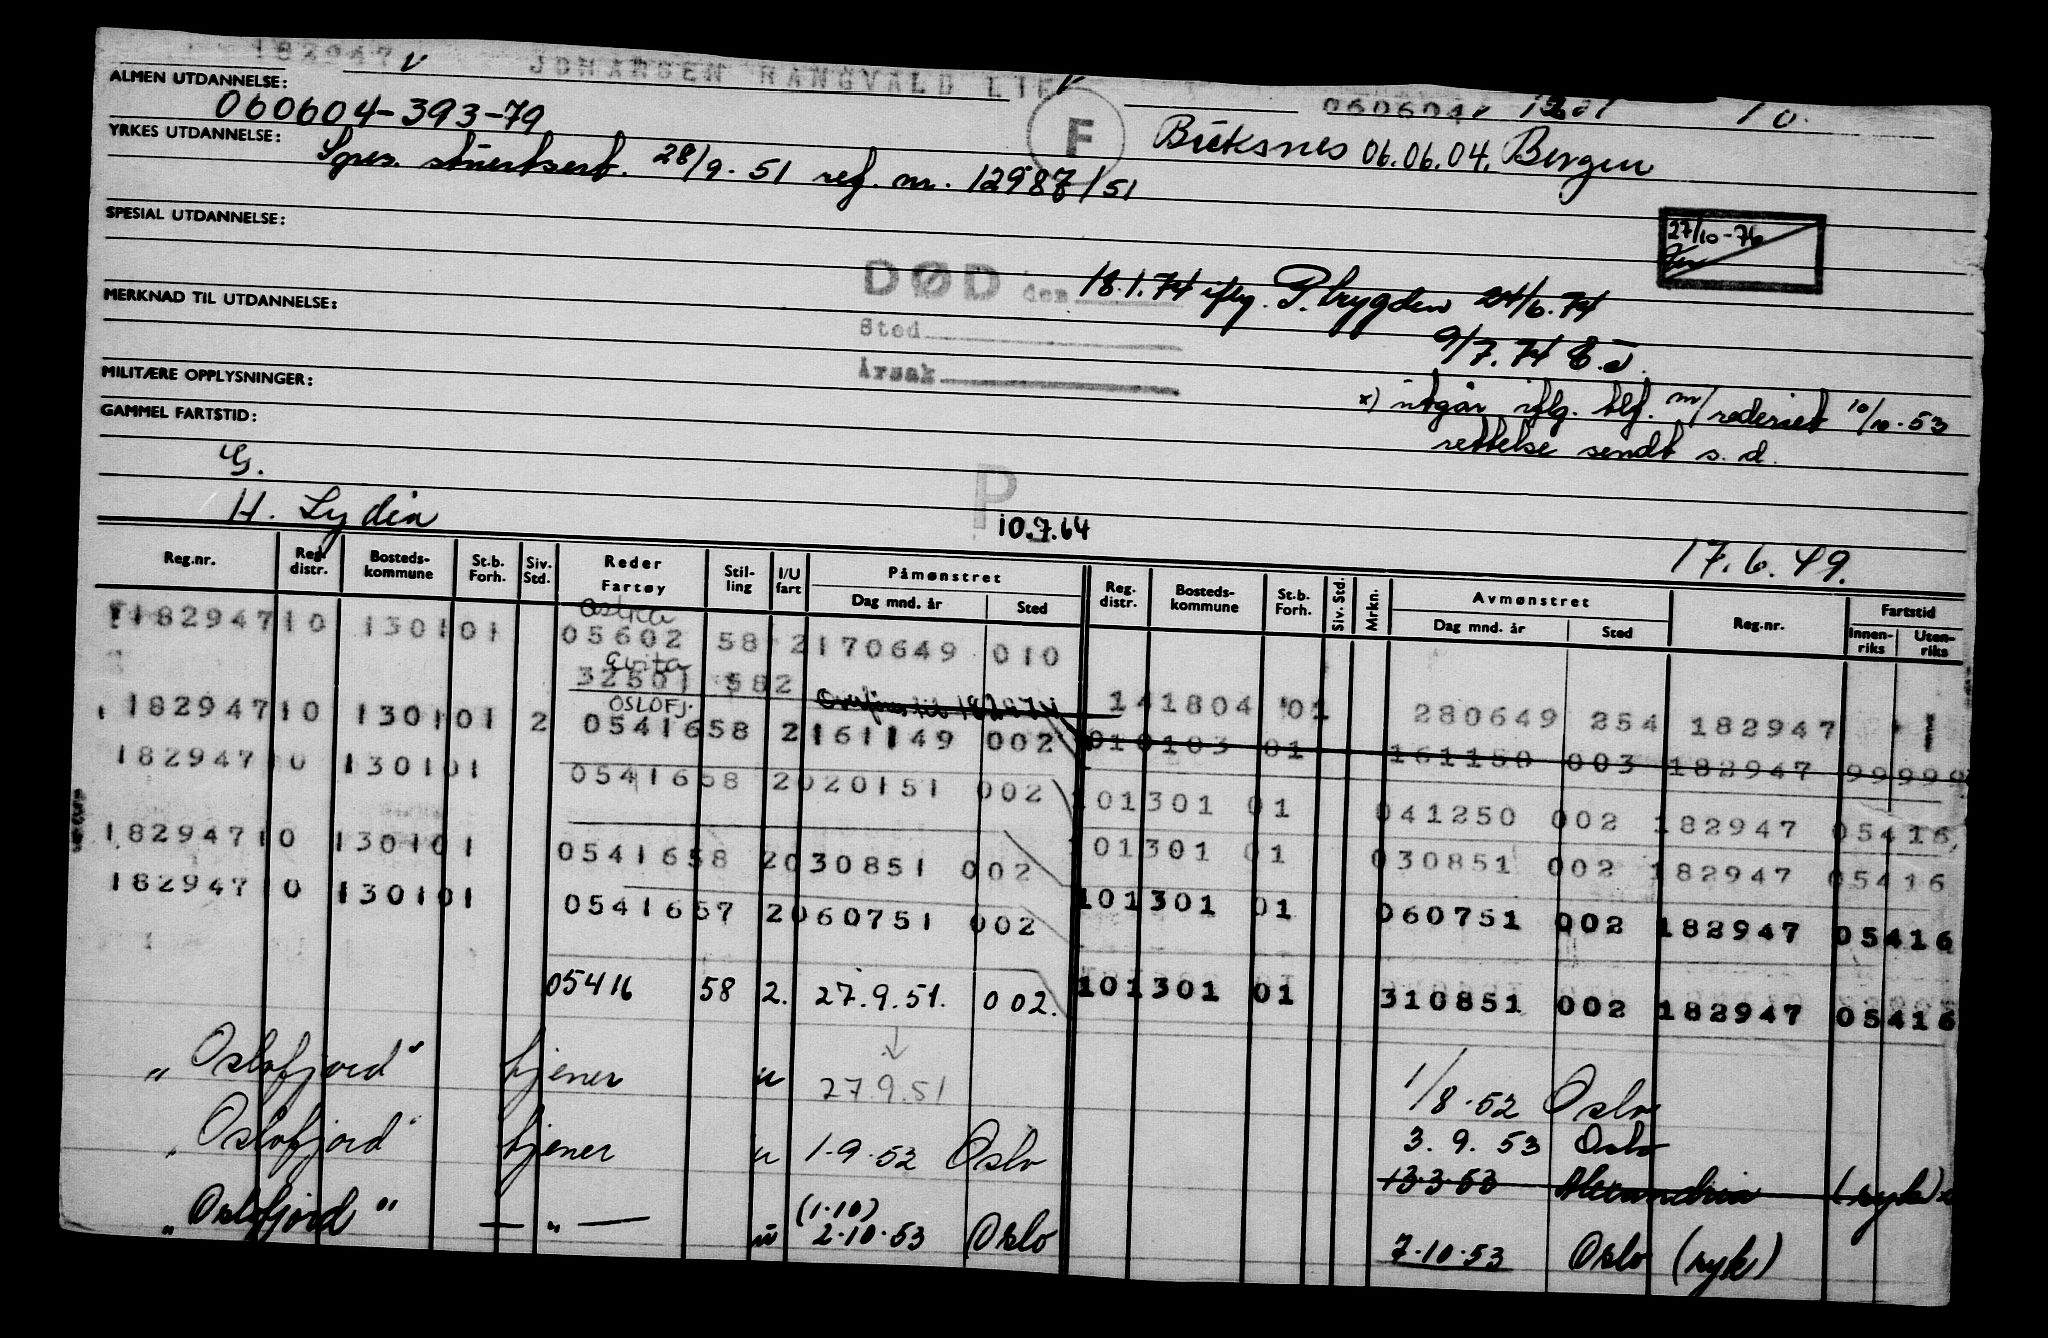 182947 v JOHANSEN RANGVALD LIE v 060604
ALMEN UTDANNELSE:
060604-393-79
YRKES UTDANNELSE: F Buksnes 06.06.04. Bergen
Spes. stuertsert. 28/9.51 ref. nr. 12987/51
SPESIAL UTDANNELSE:
27/10-76
DØD den 18.1.74 iflg. P. trygden 24/6.74
MERKNAD TIL UTDANNELSE:
Sted 9/7.74
Årsak
MILITÆRE OPPLYSNINGER:
x) utgår iflg. tlf. m/rederiet 10/10.53
GAMMEL FARTSTID:
rettelse sendt s.d.
G. P
H. Lydia 10.7.64 17.6.49.
Reg.nr. Reg. distr. Bosteds-kommune St.b. Forh. Siv. Std. Reder Fartøy Stil-ling I/U fart Påmønstret Dag mnd. år Sted Reg. distr. Bosteds-kommune St.b. Forh. Siv. Std. Mrkn. Avmønstret Dag mnd. år Sted Reg.nr. Fartstid Innen-riks Uten-riks
Astrea
182947 10 1301 01 05602 58 2 170649 010
Evita
32501 58 2 Overføres til 182947 141804 01 280649 254 182947
OSLOFJ.
182947 10 1301 01 2 05416 58 2 161149 002 010103 01 161150 003 182947 99999
182947 10 1301 01 05416 58 2 020151 002 101301 01 041250 002 182947 05416
182947 10 1301 01 05416 58 2 030851 002 101301 01 030851 002 182947 05416
182947 10 1301 01 05416 57 2 060751 002 101301 01 060751 002 182947 05416
05416 58 2. 27.9.51. 002. 101301 01 310851 002 182947 05416
"Oslofjord" tjener u 27.9.51 1/8.52 Oslo
"Oslofjord" tjener u 1.9.52 Oslo 3.9.53 Oslo
13.3.53 Alexandria (syk) x
(1.10)
"Oslofjord" — " — u 2.10.53 Oslo 7.10.53 Oslo (syk)